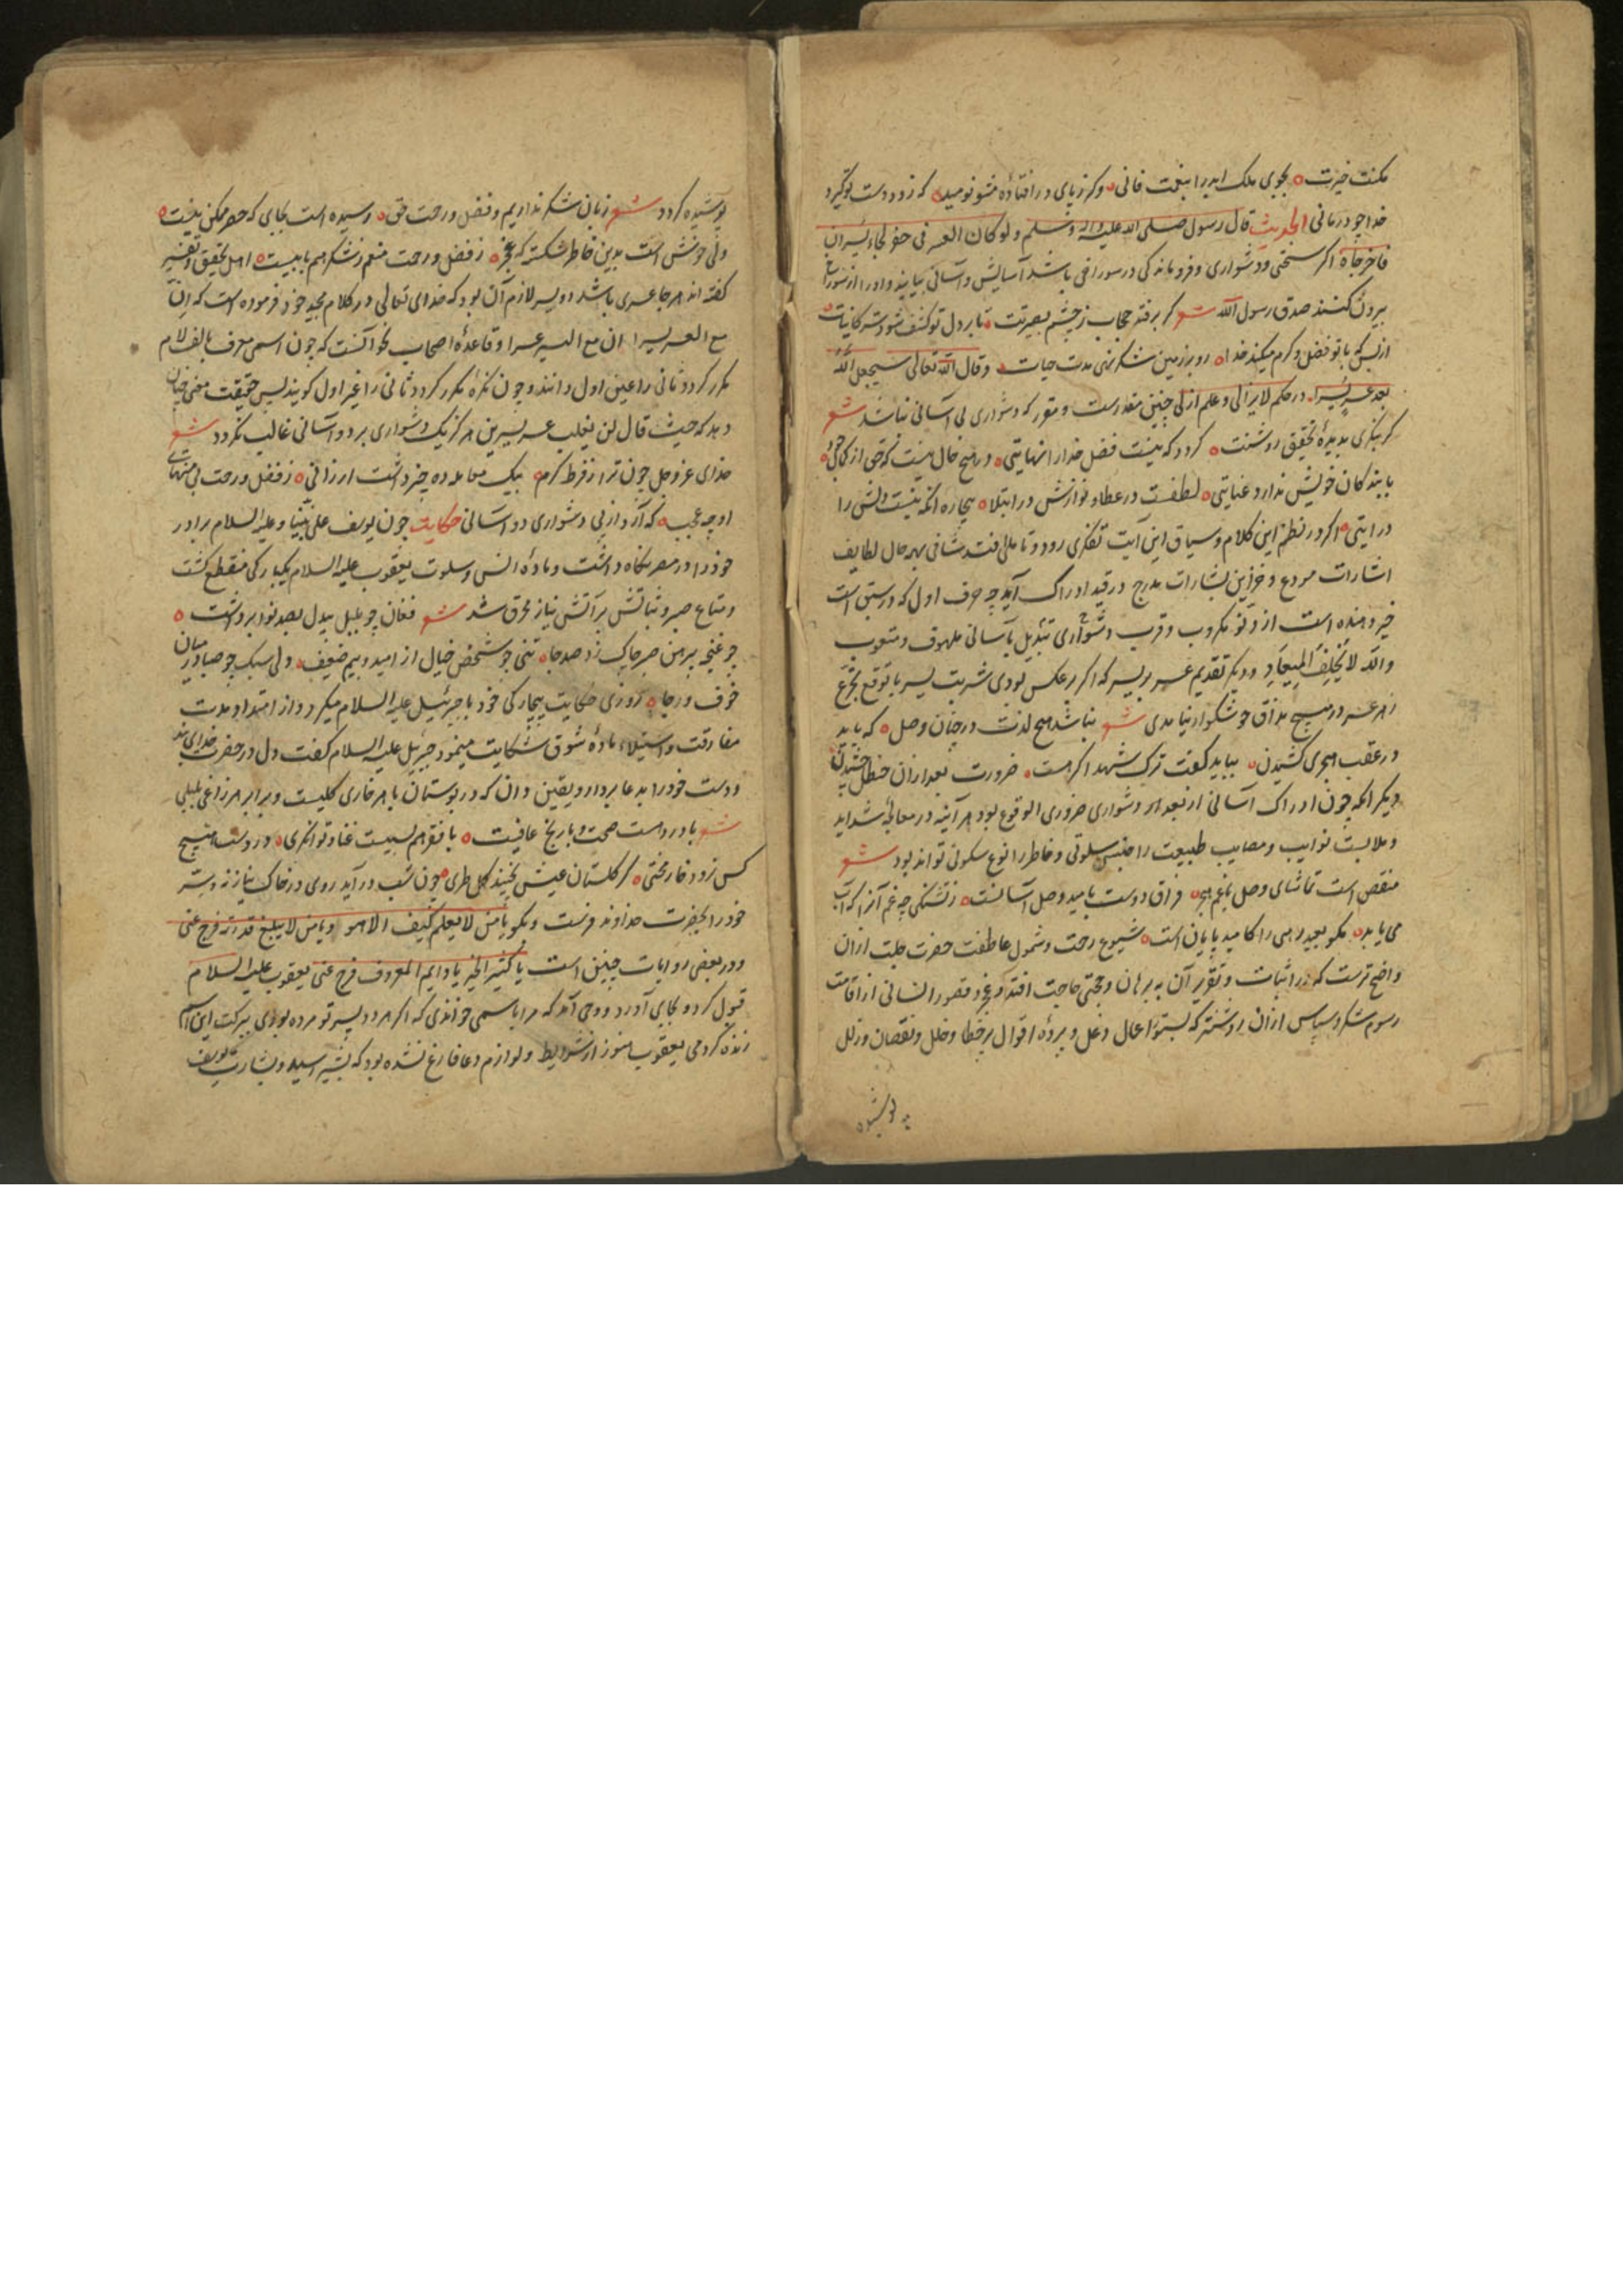 مکنت خیزت بجوی ملک ابد را بنعمت فانی وکر زپای درافتاده مشو نومید که زود دست توگیرد
خداجو درمانی الحدیث قال رسول صلی الله علیه واله وسلم ولو کان العسر فی حفر لجاء یسران
فاخرجاه اکر سختی ودشواری وفروماندکی در سوراخی باشد آسایش وآسانی بیایند واورا از سوراخ
بیرون کنند صدق رسول الله شعر کر برفتد حجاب زچشم بصیرتت تا بر دل تو کشف شود سر کاینات
ازبس که با تو فضل وکرم میکند خدا رو بر زمین شکر نهی مدت حیات وقال الله تعالی سیجعل الله
بعد عسر یسرا درحکم لایزالی وعلم ازلی چنین مقدرست ومقرر که دشواری بی آسانی نباشد شعر
کر بنکری بدیدهٔ تحقیق روشنت کردد که نیست فضل خدا را نهایتی در هیچ حال نیست که حق از کمال جود
با بندکان خویش ندارد عنایتی لطفت در عطا ونوازش در ابتلا بیچاره انکه نیست دلش را
درایتی اکر در نظم این کلام وسیاق این آیت تفکری رود وتاملی افتد بهر حال لطایف
اشارات مودع وخزاین بشارات مدرج درقید ادراک آید چه حرف اول که در سبق است
خبر دهنده است از دنو مکروب وقرب دشواری تبدیل بآسانی ملهوف ومتعوب
والله لا یخلف المیعاد ودیکر تقدیم عسر بر یسر که اکر برعکس بودی شربت یسر با توقع تجرع
زهر عسر در هیچ مذاق خوشکوار نیامدی شعر نباشد هیچ لذت در جنان وصل که باید
درعقب هجری کشیدن بباید کفت ترک شهد اکرهست ضرورت بعد ازان حنظل چشیدن
دیکر انکه چون ادراک آسانی ازبعد هر دشواری ضروری الوقوع بود هر آینه در معالجهٔ شداید
وملابست نوایب ومصایب طبیعت را جنس سلوتی وخاطر را نوع سکونی تواند بود شعر
منغص است تماشای وصل باغم هجر فراق دوست بامید وصل آسانست زتشنکی چه غم آنرا که آب
می یابد مکو بعید رهی را کامید پایان است شیوع رحمت وشمول عاطفت حضرت جلت ازان
واضح ترست که در اثبات وتقریر آن به برهان وحجتی حاجت افتد وعجز وقصور انسانی از اقامت
رسوم شکر وسپاس ازان روشنتر که بستور اعمال دغل وپردهٔ اقوال پرخطا وخلل ونقصان وزلل
پوشیده
پوشیده کردد شعر زبان شکر نداریم وفضل ورحمت حق رسیده است بجایی که حصر ممکن نیست
ولی خوش است بدین خاطر شکسته که عجز زفضل ورحمت منعم زشکر هم بابیست اهل تحقیق وتفسیر
کفته اند هرجا عسری باشد دو یسر لازم آن بود که خدای تعالی در کلام مجید خود فرموده است که ان
مع العسر یسرا ان مع العسر یسرا وقاعدهٔ اصحاب نحو آنست که چون اسمی معرف بالف ولام
مکرر کردد ثانی را عین اول دانند وچون نکره مکرر کردد ثانی را غیر اول کویند پس حقیقت معنی چنان
دهد که حیث قال لن یغلب عسر یسرین هرکز یک دشواری بر دو آسانی غالب نکردد شعر
خدای عز وجل چون ترا زفرط کرم بیک معامله ده چیز داشت ارزانی زفضل ورحمت بی منتهای
او چه عجب که آرد از پی دشواری دو آسانی حکایت چون یوسف علی نبینا وعلیه السلام برادر
خود را در مصر نکاه داشت ومادهٔ انس وسلوت یعقوب علیه السلام یکبارکی منقطع کشت
ومتاع صبر وثباتش برآتش نیاز محرق شد شعر فغان چو بلبل بیدل بصد نوا برداشت
چو غنچه پیرهن صبر چاک زد صد جا تنی چو شخص خیال از امید وبیم ضعیف دلی سبک چو صبا درمیان
خوف ورجا روزی حکایت بیچارکی خود با جبرئیل علیه السلام میکرد واز امتداد مدت
مفارقت واستیلاء مادهٔ شوق شکایت مینمود جبرئیل علیه السلام کفت دل در حضرت خدای بند
ودست خود را بدعا بردار ویقین دان که در بوستان با هر خاری کلیست وبرابر هر زاغی بلبلی
شعر با درد هست صحت وبا رنج عافیت با فقر هم بسیست غنا وتوانکری در دست هیچ
کس نرود خار محنتی کز کلستان عیش نچیند کل طری چون شب درآید روی درخاک نیاز نه وسر
خود را بحضرت خداوند فرست وبکو یا من لا یعلم کیف الا هو ویا من لا یبلغ قدرته فرج عنی
ودر بعضی روایات چنین است یا کثیر الخیر یا دایم المعروف فرج عنی یعقوب علیه السلام
قبول کرد وبجای آورد ووحی آمد که مرا باسمی خواندی که اکر هر دو پسر تو مرده بودی ببرکت این اسم
زنده کردمی یعقوب هنوز از شرایط ولوازم دعا فارغ نشده بود که بشیر رسید وبشارت یوسف